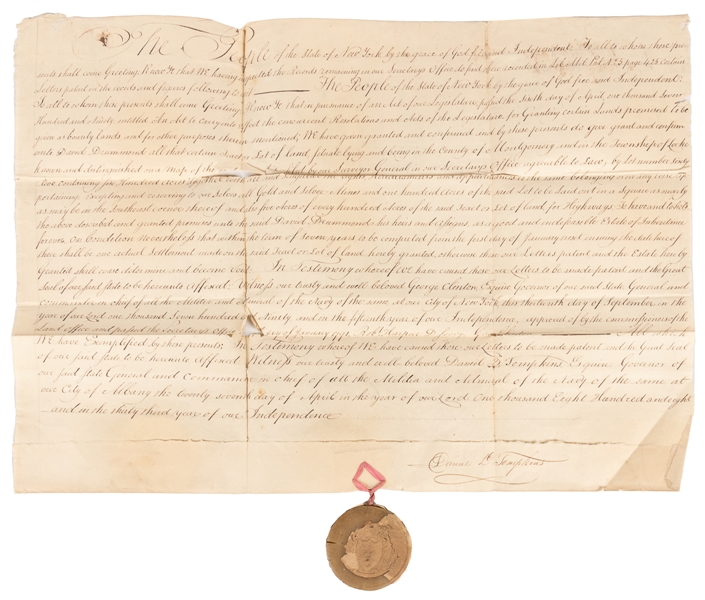 The People of the State of New York by the grace of God free and Independent. To all to whom these pre-
sents shall come Greeting. Know Ye that We having inspected the Records remaining in our Secretarys Office do find there recorded in
Letters Patent in the words and figures following to wit The People of the State of New York by the grace of God free and Independent
To all to whom these presents shall come Greeting Know Ye that in pursuance of an Act of our Legislature passed the Sixth day of April one thousand Seven
Hundred and Ninety entitled An Act to carry into effect the concurrent Resolutions and Acts of the Legislature for Granting certain Lands promised to be
given as bounty Lands and for other purposes therein mentioned; We have given granted and confirmed and by these presents do give grant and confirm
unto David Drummond all that certain Tract or Lot of land situate lying and being in the County of Montgomery and in the Township of Locke
known and distinguished on a Map of the Surveyor General in our Secretarys Office agreeable to Law, by lot number ninety
two containing six Hundred Acres together with all and
pertaining Excepting and reserving to ourselves all Gold and Silver Mines and one Hundred Acres of the said Lot to be laid out in a Square as nearly
as may be in the Southeast corner thereof and five Acres of every hundred Acres of the said Tract or Lot of land for Highways To have and to hold
the above described and granted premises unto the said David Drummond his heirs and Assigns, as a good and indefeasible Estate of Inheritance
forever. On Condition Nevertheless that within the term of Seven years to be computed from the first day of January next ensuing the date hereof
there shall be one actual Settlement made on the said Tract or Lot of land hereby granted, otherwise these our Letters patent and the Estate hereby
Granted shall cease determine and become void. In Testimony whereof We have caused these our Letters to be made patent and the Great
Seal of our said State to be hereunto Affixed. Witness our trusty and well beloved George Clinton Esquire Governor of our said State General and
Commander in chief of all the Militia and Admiral of the Navy of the same at our City of New York this thirteenth day of September in the
year of our Lord one thousand Seven hundred and ninety and in the fifteenth year of our Independence, approved of by the commissioners of the
Land Office and passed the Secretarys Office day of All which
We have Exemplified by these presents; In Testimony whereof We have caused these our Letters to be made patent and the Great Seal
of our said State to be hereunto Affixed Witness our trusty and well beloved Daniel D Tompkins Esquire Governor of
our said State General and Commander in chief of all the Militia and Admiral of the Navy of the same at
our City of Albany the twenty seventh day of April in the year of our Lord One thousand Eight Hundred and eight
and in the thirty third year of our Independence
Daniel D Tompkins